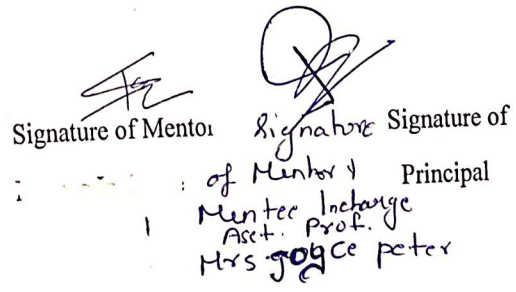 Signature of Mentor
Signature
of Mentor &
Mentee Incharge
Asst. Prof.
Mrs Joyce peter
Signature of
Principal